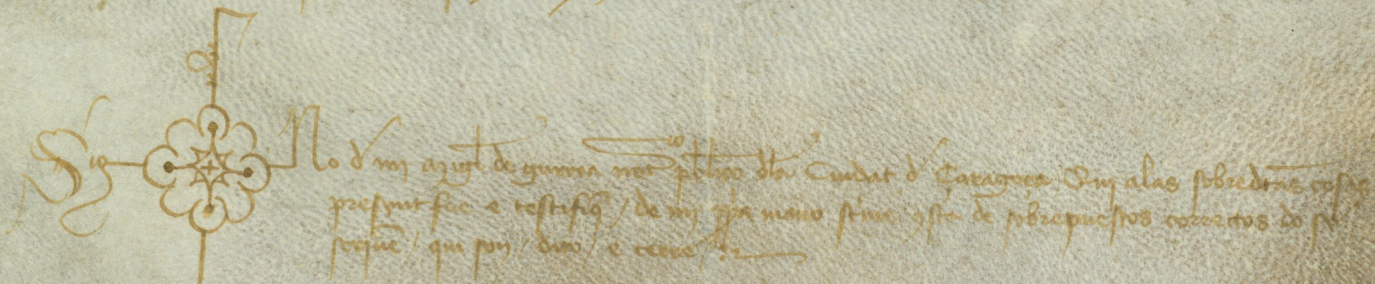 Sig No d mi migl de gurrea not publico dla Ciudat d Caragoça Qui alas sobredtas cosas
present fue e testifiq / de mi ppa mano scriui / gsta de sobrepuestos correctos do se
/ qui son / dito / e cerre